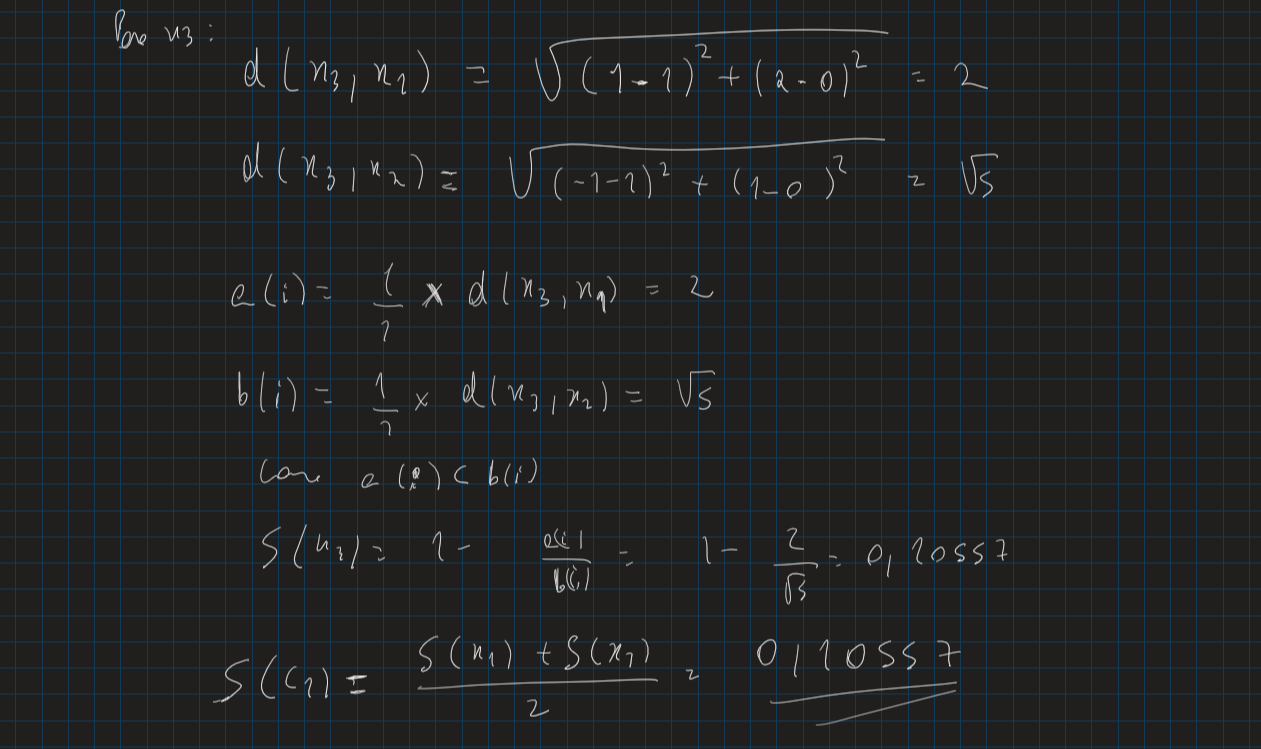 Para x3 :
d(x3, x1) = √((1-1)² + (2-0)²) = 2
d(x3, x2) = √((-1-1)² + (1-0)²) = √5
a(i) = 1/1 × d(x3, x1) = 2
b(i) = 1/1 × d(x3, x2) = √5
Como a(i) < b(i)
S(x3) = 1 - a(i)/b(i) = 1 - 2/√5 = 0,10557
S(C1) = (S(x1) + S(x3))/2 = 0,10557